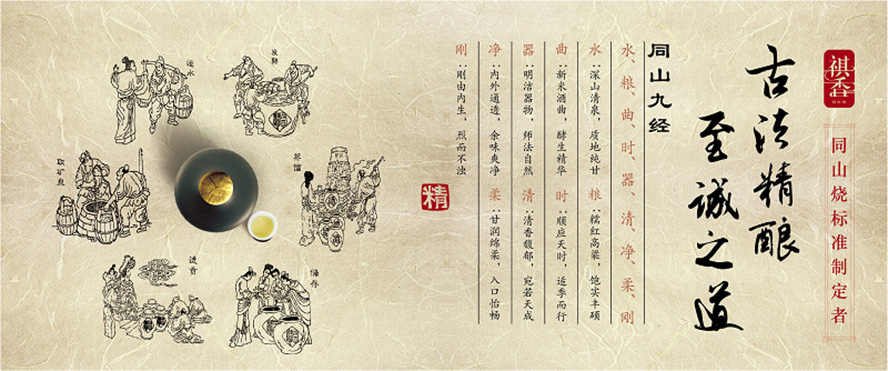 祺香
同山烧标准制定者
古法精酿
至诚之道
同山九经
水、粮、曲、时、器、清、净、柔、刚
水：深山清泉，质地纯甘
粮：糯红高粱，饱实丰硕
曲：新米酒曲，酵生精华
时：顺应天时，适季而行
器：明洁器物，师法自然
清：清香馥郁，宛若天成
净：内外通透，余味爽净
柔：甘润绵柔，入口怡畅
刚：刚由内生，烈而不浊
精
发酵
蒸馏
储存
进贡
取矿泉